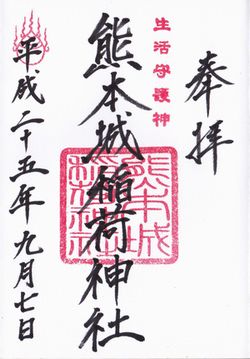 奉拝
生活守護神
熊本城稲荷神社
熊本城稲荷神社
平成二十五年九月七日